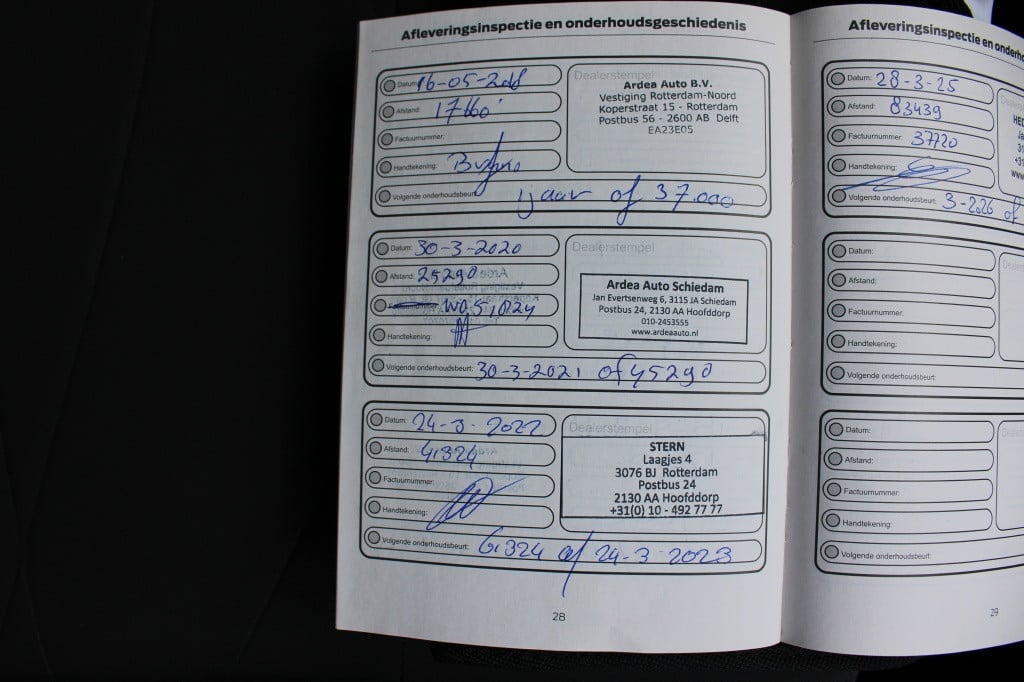 Afleveringsinspectie en onderhoudsgeschiedenis
Datum: 16-05-2018
Afstand: 17160
Factuurnummer:
Handtekening:
Volgende onderhoudsbeurt: 1 jaar of 37.000
Dealerstempel
Ardea Auto B.V.
Vestiging Rotterdam-Noord
Koperstraat 15 - Rotterdam
Postbus 56 - 2600 AB Delft
EA23E05
Datum: 30-3-2020
Afstand: 25290
Handtekening:
Volgende onderhoudsbeurt: 30-3-2021 of 45290
Dealerstempel
Ardea Auto Schiedam
Jan Evertsenweg 6, 3115 JA Schiedam
Postbus 24, 2130 AA Hoofddorp
010-2453555
www.ardeaauto.nl
Datum: 24-3-2022
Afstand: 41324
Factuurnummer:
Handtekening:
Volgende onderhoudsbeurt: 61324 of 24-3-2023
Dealerstempel
STERN
Laagjes 4
3076 BJ Rotterdam
Postbus 24
2130 AA Hoofddorp
+31(0) 10 - 492 77 77
28
Afleveringsinspectie en
Datum: 28-3-25
Afstand: 83439
Factuurnummer: 37720
Handtekening:
Volgende onderhoudsbeurt: 3-2026 of
Datum:
Afstand:
Factuurnummer:
Handtekening:
Volgende onderhoudsbeurt:
Datum:
Afstand:
Factuurnummer:
Handtekening:
Volgende onderhoudsbeurt:
29